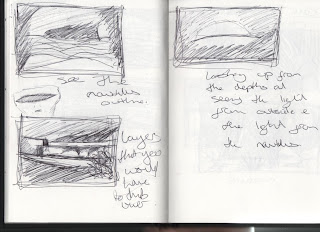 see the
nautilus
outline.
layers
that you
would
have
to
over
Looking up from
the depths at
seeing the light
from outside &
the light from
the nautilus